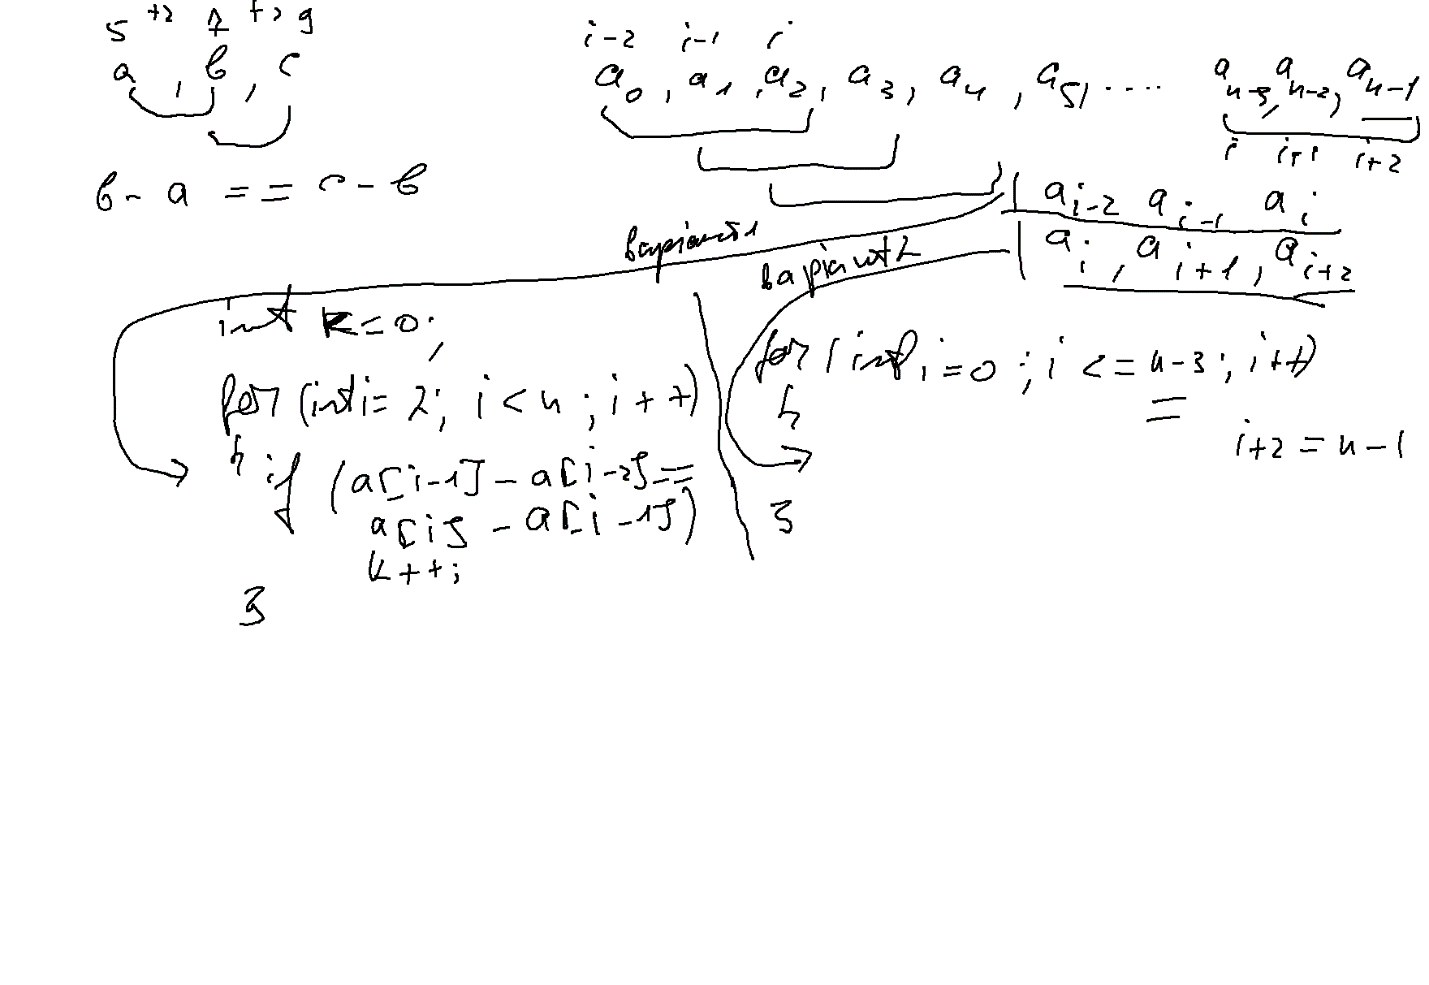 5 +2 7 +2 9
a , b , c
b - a == c - b
i-2 i-1 i
a0, a1, a2, a3, a4, a5, .... an-3, an-2, an-1
i i+1 i+2
ai-2 ai-1 ai
ai, ai+1, ai+2
варіант1
варіант2
int k=0;
for (int i=2; i<n; i++)
{ if (a[i-1] - a[i-2] ==
a[i] - a[i-1])
k++;
}
for (int i=0; i<=n-3; i++)
{
i+2 = n-1
}